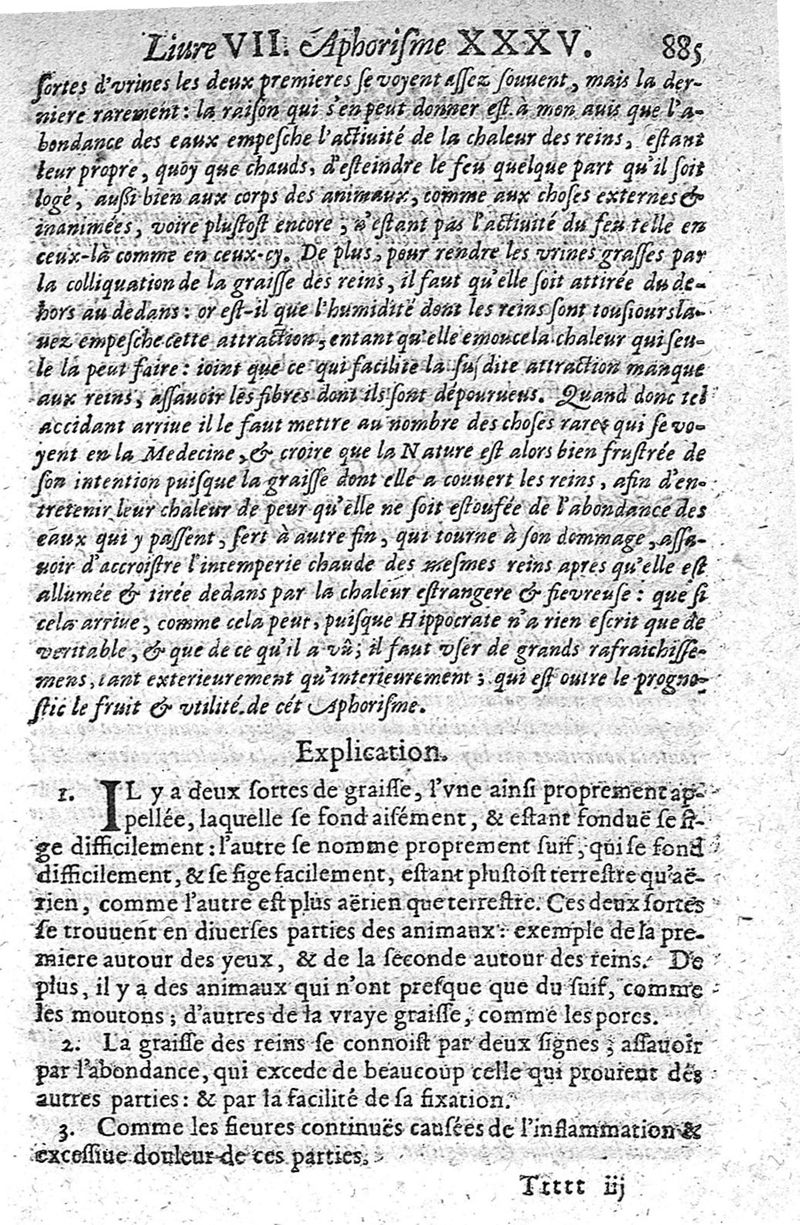 Liure VII. Aphoriſme XXXV. 885
ſortes d'vrines les deux premieres ſe voyent aſſez ſouuent, mais la der-
niere rarement: la raiſon qui s'en peut donner eſt à mon auis que l'a-
bondance des eaux empeſche l'actiuité de la chaleur des reins, eſtant
leur propre, quoy que chauds, d'eſteindre le feu quelque part qu'il ſoit
logé, auſsi bien aux corps des animaux, comme aux choſes externes &
inanimées, voire pluſtoſt encore, n'eſtant pas l'actiuité du feu telle en
ceux-là comme en ceux-cy. De plus, pour rendre les vrines graſſes par
la colliquation de la graiſſe des reins, il faut qu'elle ſoit attirée du de-
hors au dedans: or eſt-il que l'humidité dont les reins ſont touſiours la-
uez empeſche cette attraction, entant qu'elle emouce la chaleur qui ſeu-
le la peut faire: ioint que ce qui facilite la ſuſdite attraction manque
aux reins, aſſauoir les fibres dont ils ſont dépourueus. Quand donc tel
accidant arriue il le faut mettre au nombre des choſes rares qui ſe vo-
yent en la Medecine, & croire que la Nature eſt alors bien fruſtrée de
ſon intention puiſque la graiſſe dont elle a couuert les reins, afin d'en-
tretenir leur chaleur de peur qu'elle ne ſoit eſtoufée de l'abondance des
eaux qui y paſſent, ſert à autre fin, qui tourne à ſon dommage, aſſa-
uoir d'accroiſtre l'intemperie chaude des meſmes reins apres qu'elle eſt
allumée & tirée dedans par la chaleur eſtrangere & fievreuſe: que ſi
cela arriue, comme cela peut, puiſque Hippocrate n'a rien eſcrit que de
veritable, & que de ce qu'il a vû; il faut vſer de grands rafraichiſſe-
mens, tant exterieurement qu'interieurement; qui eſt outre le progno-
ſtic le fruit & vtilité de cét Aphoriſme.
Explication.
1. IL y a deux ſortes de graiſſe, l'vne ainſi proprement ap-
pellée, laquelle ſe fond aiſément, & eſtant fonduë ſe fi-
ge difficilement: l'autre ſe nomme proprement ſuif, qui ſe fond
difficilement, & ſe fige facilement, eſtant pluſtoſt terreſtre qu'aë-
rien, comme l'autre eſt plus aërien que terreſtre. Ces deux ſortes
ſe trouuent en diuerſes parties des animaux: exemple de la pre-
miere autour des yeux, & de la ſeconde autour des reins. De
plus, il y a des animaux qui n'ont preſque que du ſuif, comme
les moutons; d'autres de la vraye graiſſe, comme les porcs.
2. La graiſſe des reins ſe connoiſt par deux ſignes; aſſauoir
par l'abondance, qui excede de beaucoup celle qui prouient des
autres parties: & par la facilité de ſa fixation.
3. Comme les fieures continuës cauſées de l'inflammation &
exceſſiue douleur de ces parties.
Ttttt iij